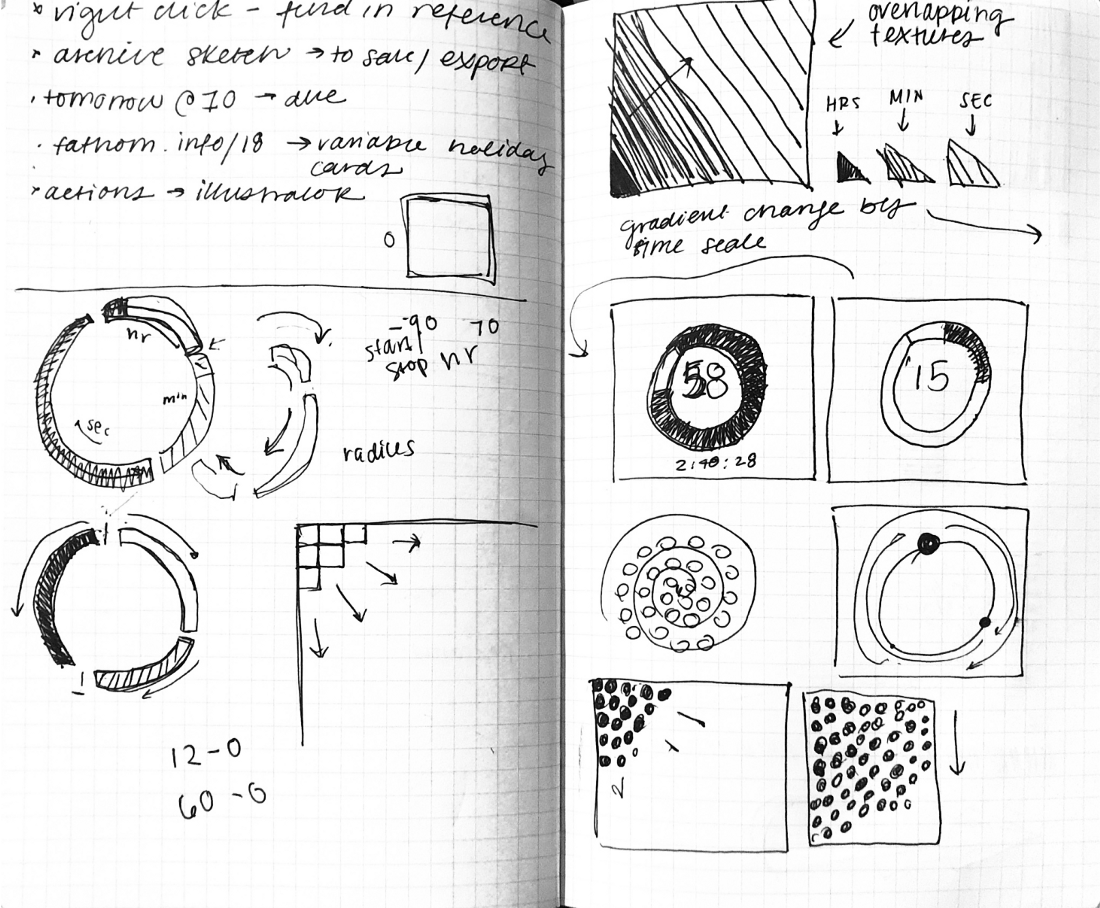 * right click - find in reference
* archive sketch → to save / export
· tomorrow @ 10 → due
· fathom.info/18 → variable holiday
cards
* actions → illustrator
0
hr
min
sec
-90 70
start/
stop hr
radius
12-0
60-0
overlapping
textures
HRS MIN SEC
gradient change by
time scale
58
2:40:28
15